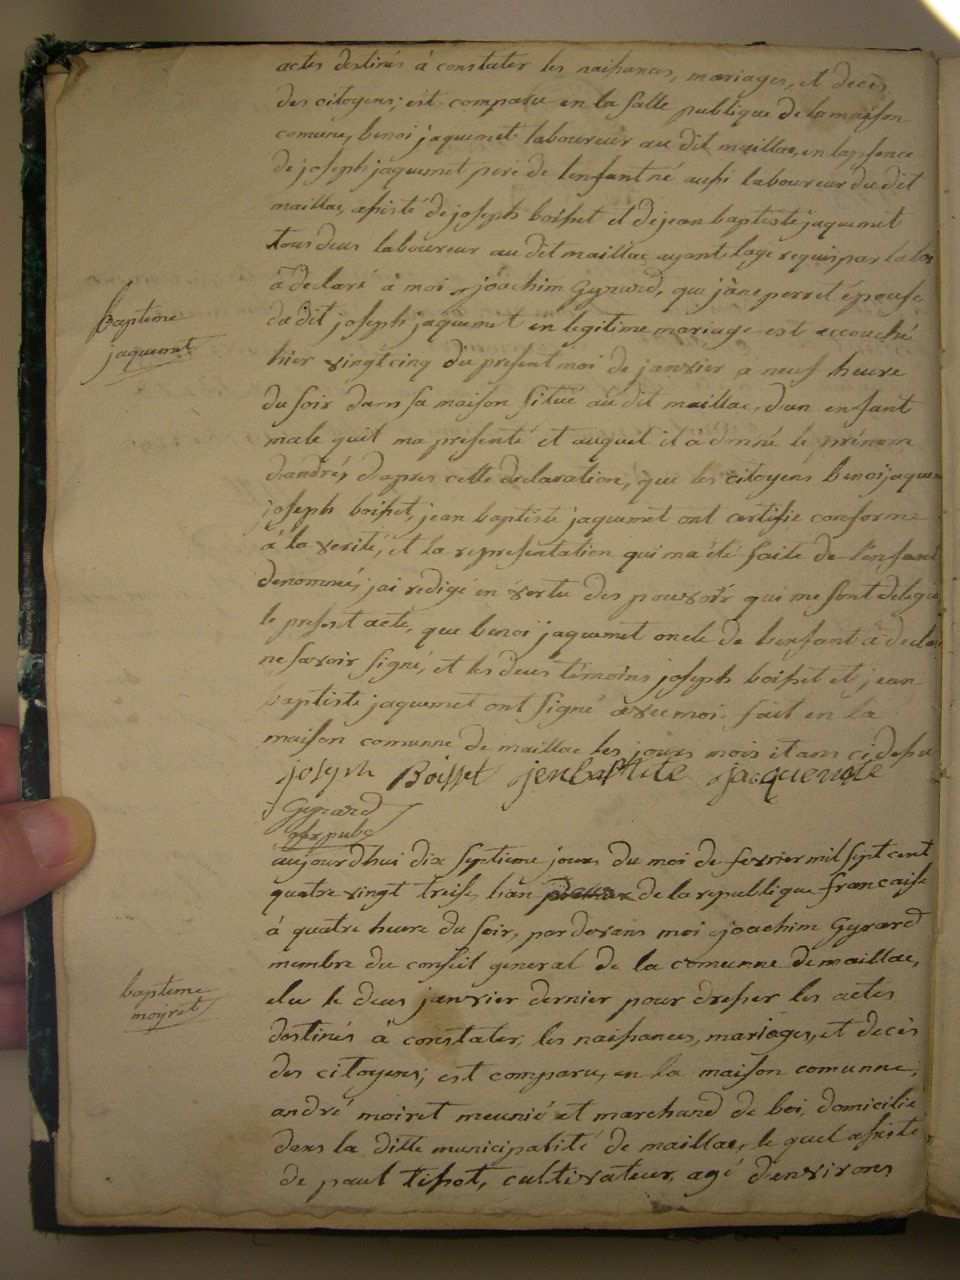 actes destinés à constater les naissances, mariages, et decès
des citoyens; est comparu en la salle publique de la maison
comune, benoi jaquemet laboureur au dit maillac, en la psence
de joseph jaquemet pere de l'enfant né aussi laboureur du dit
maillac, assisté de joseph boisset et de jean baptiste jaquemet
tous deus laboureur au dit maillac ayant lage requis par la loi
à declaré à moi joachim Gyrard, que jâne perret épouse
du dit joseph jaquemet en legitime mariage est accouché
baptême
jaquemet
hier vingt cinq du present moi de janvier a neuf heure
du soir dans sa maison situé au dit maillac, d'un enfant
male quil ma presenté et auquel il à donné le prénom
d'andré, d'apres cette declaration, que les citoyens benoi jaquem
joseph boisset, jean baptiste jaquemet ont certifié conforme
à la verité, et la representation qui ma été faite de l'enfant
denommé, jai redigé en vertu des pouvoir qui me sont delegué
le present acte, que benoi jaquemet oncle de l'enfant à declaré
ne savoir signé, et les deus témoins joseph boisset et jean
baptiste jaquemet ont signé avec moi. fait en la
maison comunne de maillac les jours mois et ans ci desus
joseph Boisset jenbaptite jaquemete
Gyrard
off publ
aujourd'hui dix septieme jours du moi de fevrier mil sept cent
quatre vingt treise, l'an deux de la republique francaise
à quatre heure du soir, pardevans moi joachim Gyrard
membre du conseil general de la comunne de maillac,
baptême
moyret
elu le deus janvier dernier pour dresser les actes
destinés à constater, les naissances, mariages, et decès
des citoyens; est comparu, en la maison comunne,
andré moiret meunié et marchand de boi, domicilié
dans la ditte municipalité de maillac, le quel assisté
de paul tissot, cultivateur, agé d'environs